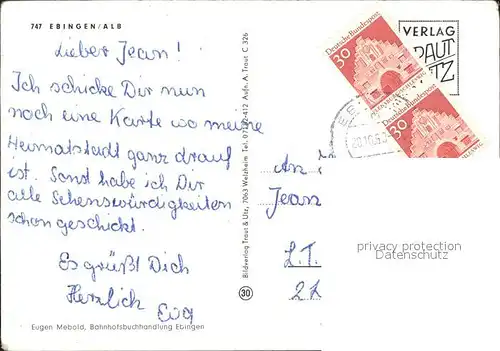 747 EBINGEN/ALB
Lieber Jean!
Ich schicke Dir nun
noch eine Karte wo meine
Heimatstadt ganz drauf
ist. Sonst habe ich Dir
alle Sehenswürdigkeiten
schon geschickt.
Es grüßt Dich
Herzlich
Eva
Eugen Mebold, Bahnhofsbuchhandlung Ebingen
Bildverlag Traut & Utz, 7063 Welzheim Tel. 07182-412 Aufn. A. Traut C 326
30
VERLAG
RAUT
TZ
Deutsche Bundespost
30
Deutsche Bundespost
30
An
Jean
L.T.
privacy protection
Datenschutz